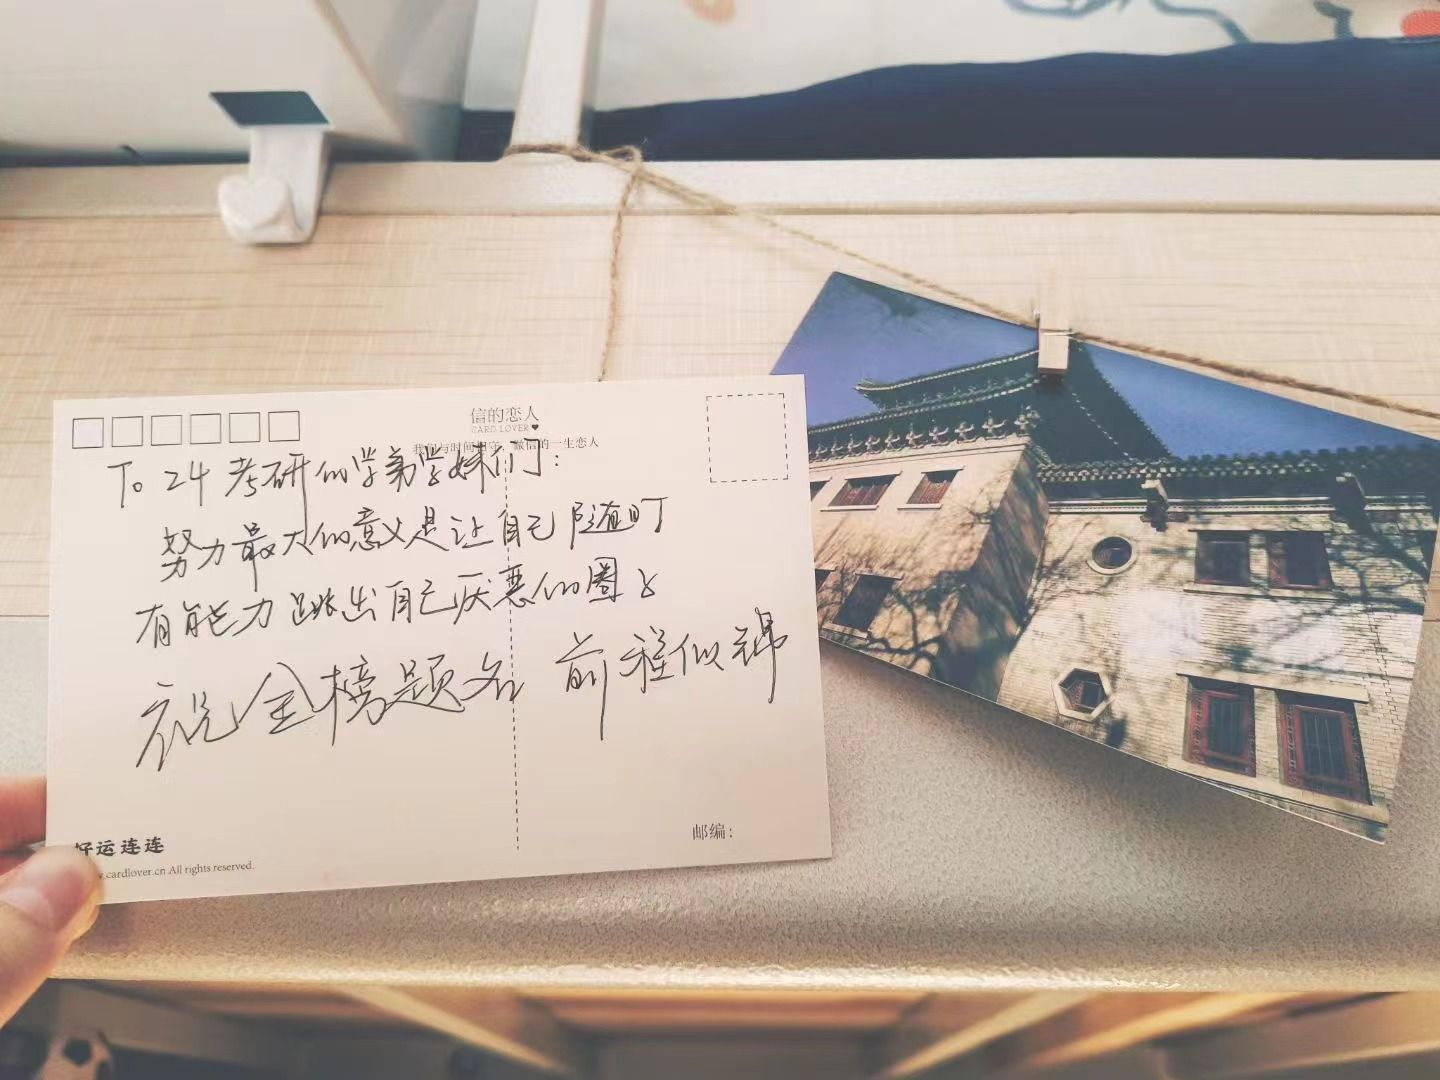 信的恋人
CARD LOVER
一生恋人
To 24考研的学弟学妹们：
努力最大的意义是让自己随时
有能力跳出自己厌恶的圈子
祝金榜题名 前程似锦
邮编：
好运连连
cardlover.cn All rights reserved.